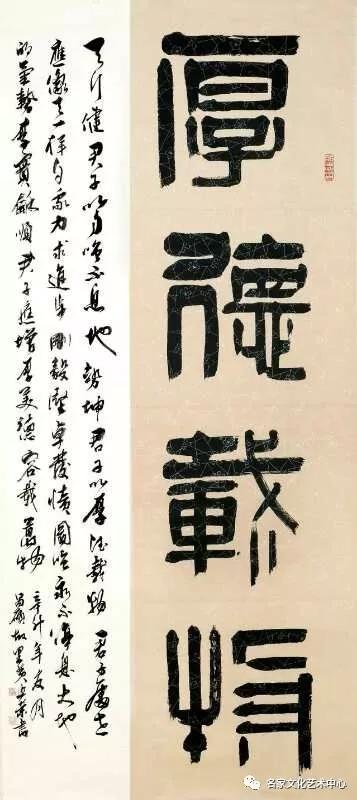 厚德載物
天行健君子以自强不息地勢坤君子以厚德載物君子處世
應像天一样自我力求進步剛毅堅卓發憤圖强永不停息大地
的氣勢厚實龢順君子應增厚美德容載萬物
名家文化艺术中心